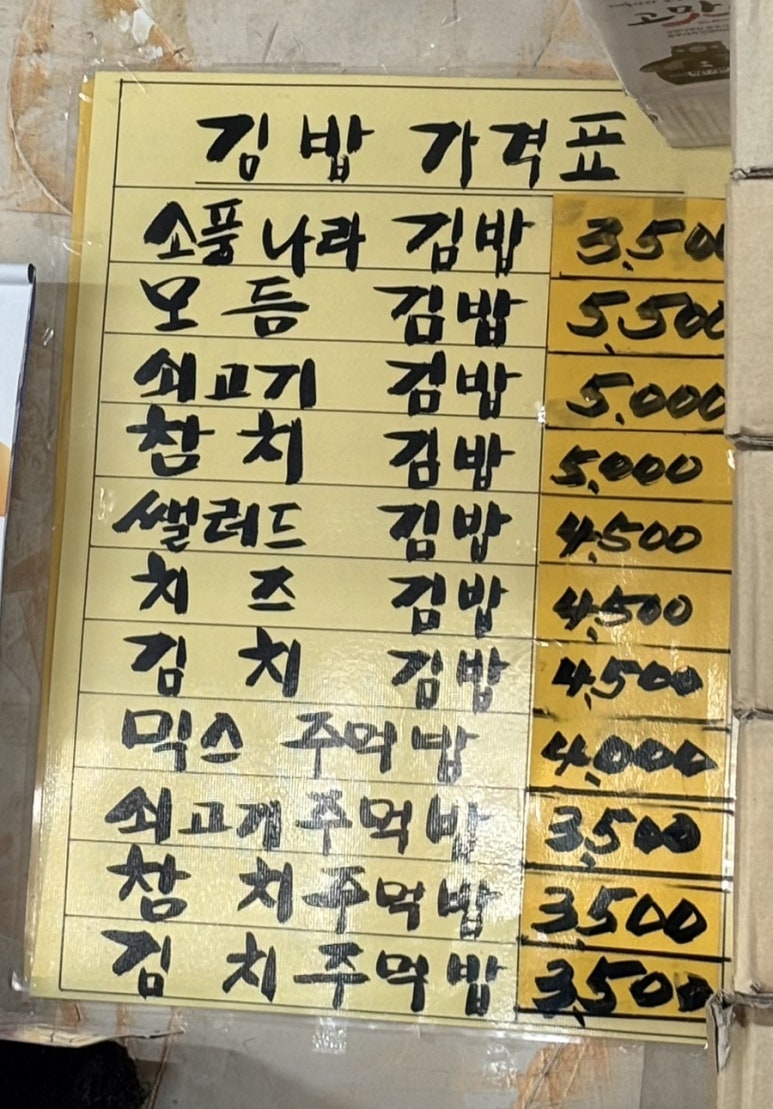 고맛
김밥 가격표
소풍나라 김밥 3,500
모듬 김밥 5,500
쇠고기 김밥 5,000
참치 김밥 5,000
쌜러드 김밥 4,500
치즈 김밥 4,500
김치 김밥 4,500
믹스 주먹밥 4,000
쇠고기주먹밥 3,500
참치주먹밥 3,500
김치주먹밥 3,500